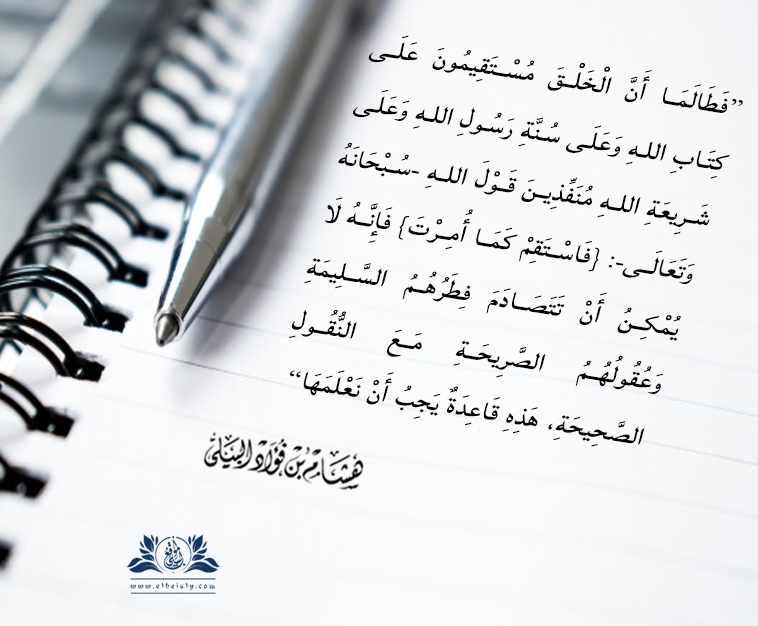 ”فَطَالَمَـا أَنَّ الْخَلْـقَ مُسْـتَقِيمُونَ عَلَـى
كِتَـابِ اللـهِ وَعَلَـى سُـنَّةِ رَسُـولِ اللـهِ وَعَلَـى
شَـرِيعَةِ اللـهِ مُنَفِّذِيـنَ قَـوْلَ اللـهِ -سُـبْحَانَهُ
وَتَعَالَـى-: {فَاسْـتَقِمْ كَمَـا أُمِـرْتَ} فَإِنَّـهُ لَا
يُمْكِـنُ أَنْ تَتَصَـادَمَ فِطَرُهُـمُ السَّـلِيمَةِ
وَعُقُولُهُـمُ الصَّرِيحَـةِ مَـعَ النُّقُـولِ
الصَّحِيحَةِ، هَذِهِ قَاعِدَةٌ يَجِبُ أَنْ نَعْلَمَهَا“
هشام بن فؤاد البيلي
www.elbeialy.com